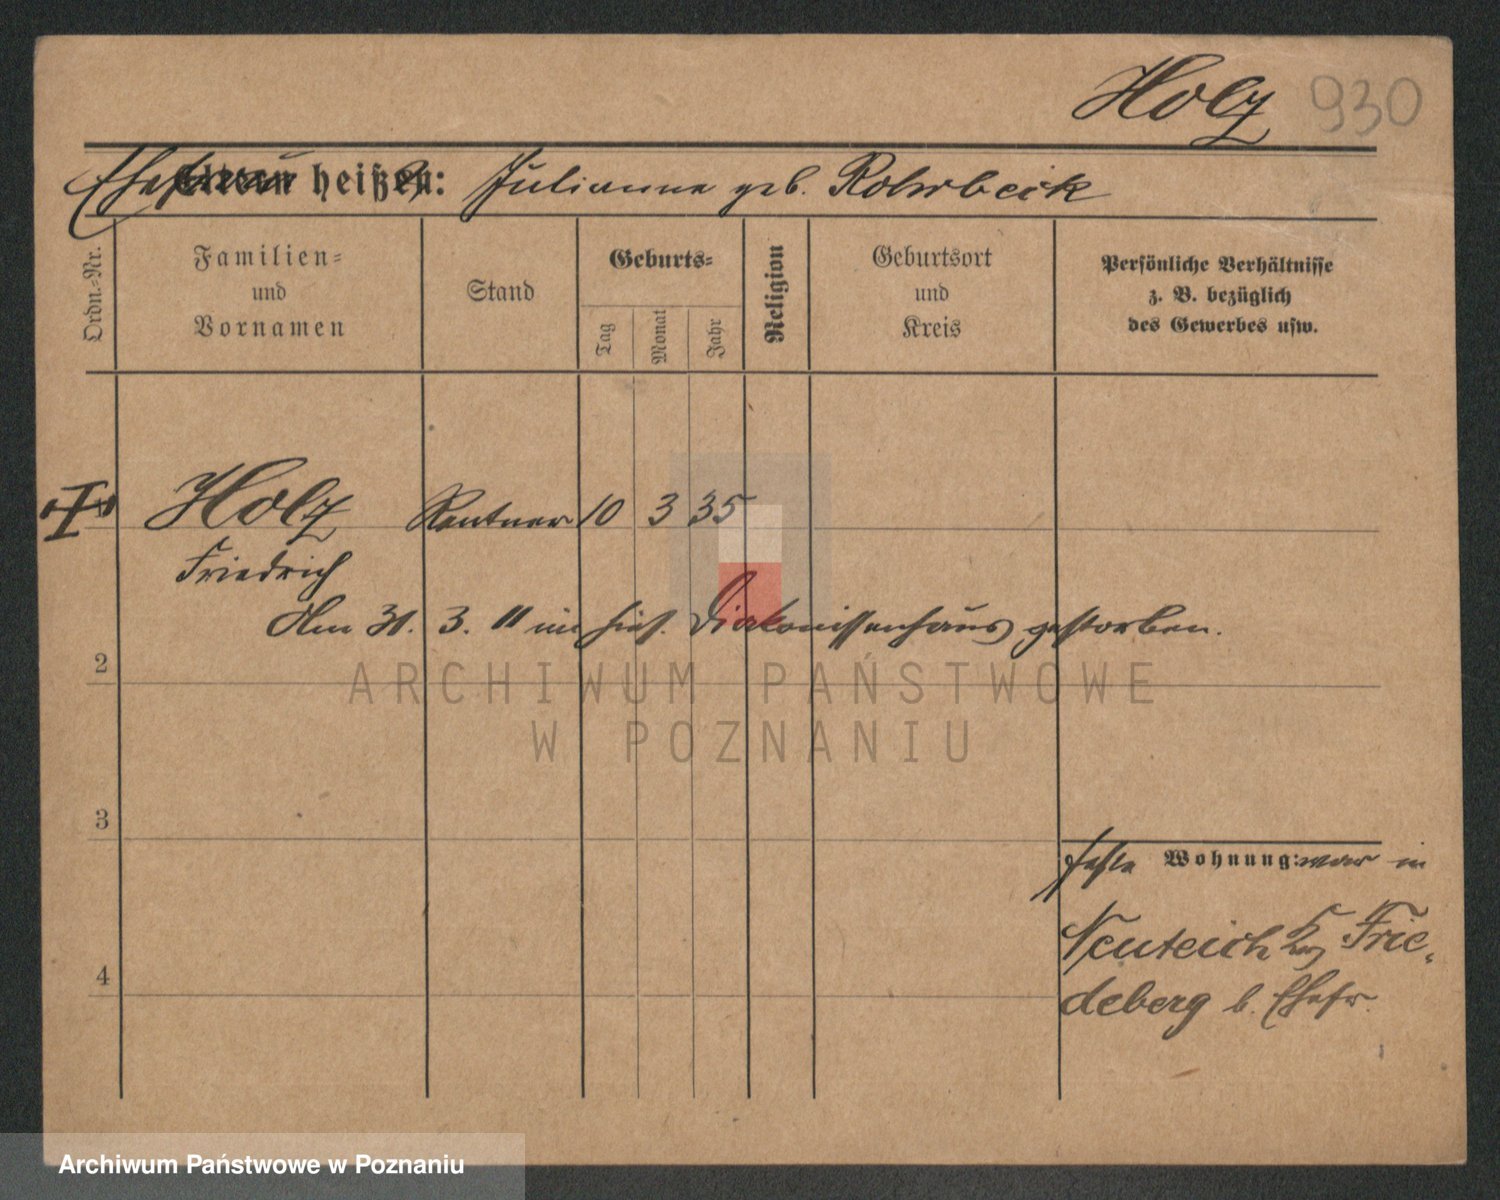 Holz 930
Ehefrau heißt: Julianne geb. Rohrbeck
Ordn.-Nr.
Familien-
und
Vornamen
Stand
Geburts-
Tag
Monat
Jahr
Religion
Geburtsort
und
Kreis
Persönliche Verhältnisse
z. B. bezüglich
des Gewerbes usw.
Holz Rentner 10 3 35
Friedrich
Am 31. 3. 11 im hies. Diakonissenhaus gestorben.
2
3
4
feste Wohnung: war in
Neuteich Krs Frie-
deberg b. Ehefr.
ARCHIWUM PAŃSTWOWE
W POZNANIU
Archiwum Państwowe w Poznaniu